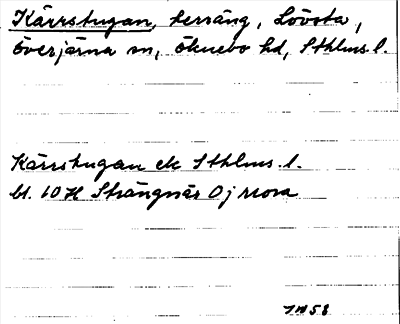 Kärrstugan, terräng, Lövsta,
Överjärna sn, Öknebo hd, Sthlms l.
Kärrstugan ek Sthlms l.
bl. 10 H Strängnäs Oj NO